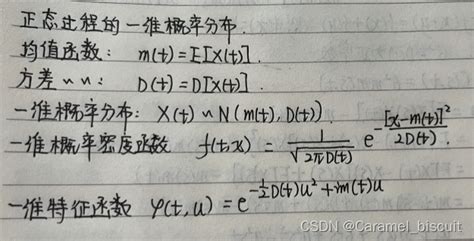 正态过程的一维概率分布.
均值函数: m(t)=E[X(t)].
方差〃〃: D(t)=D[X(t)].
一维概率分布: X(t)~N(m(t),D(t))
一维概率密度函数 f(t,x) = \frac{1}{\sqrt{2πD(t)}} e^{-\frac{[x-m(t)]^2}{2D(t)}}.
一维特征函数 φ(t,u)=e^{-\frac{1}{2}D(t)u^2+im(t)u}
CSDN @Caramel_biscuit